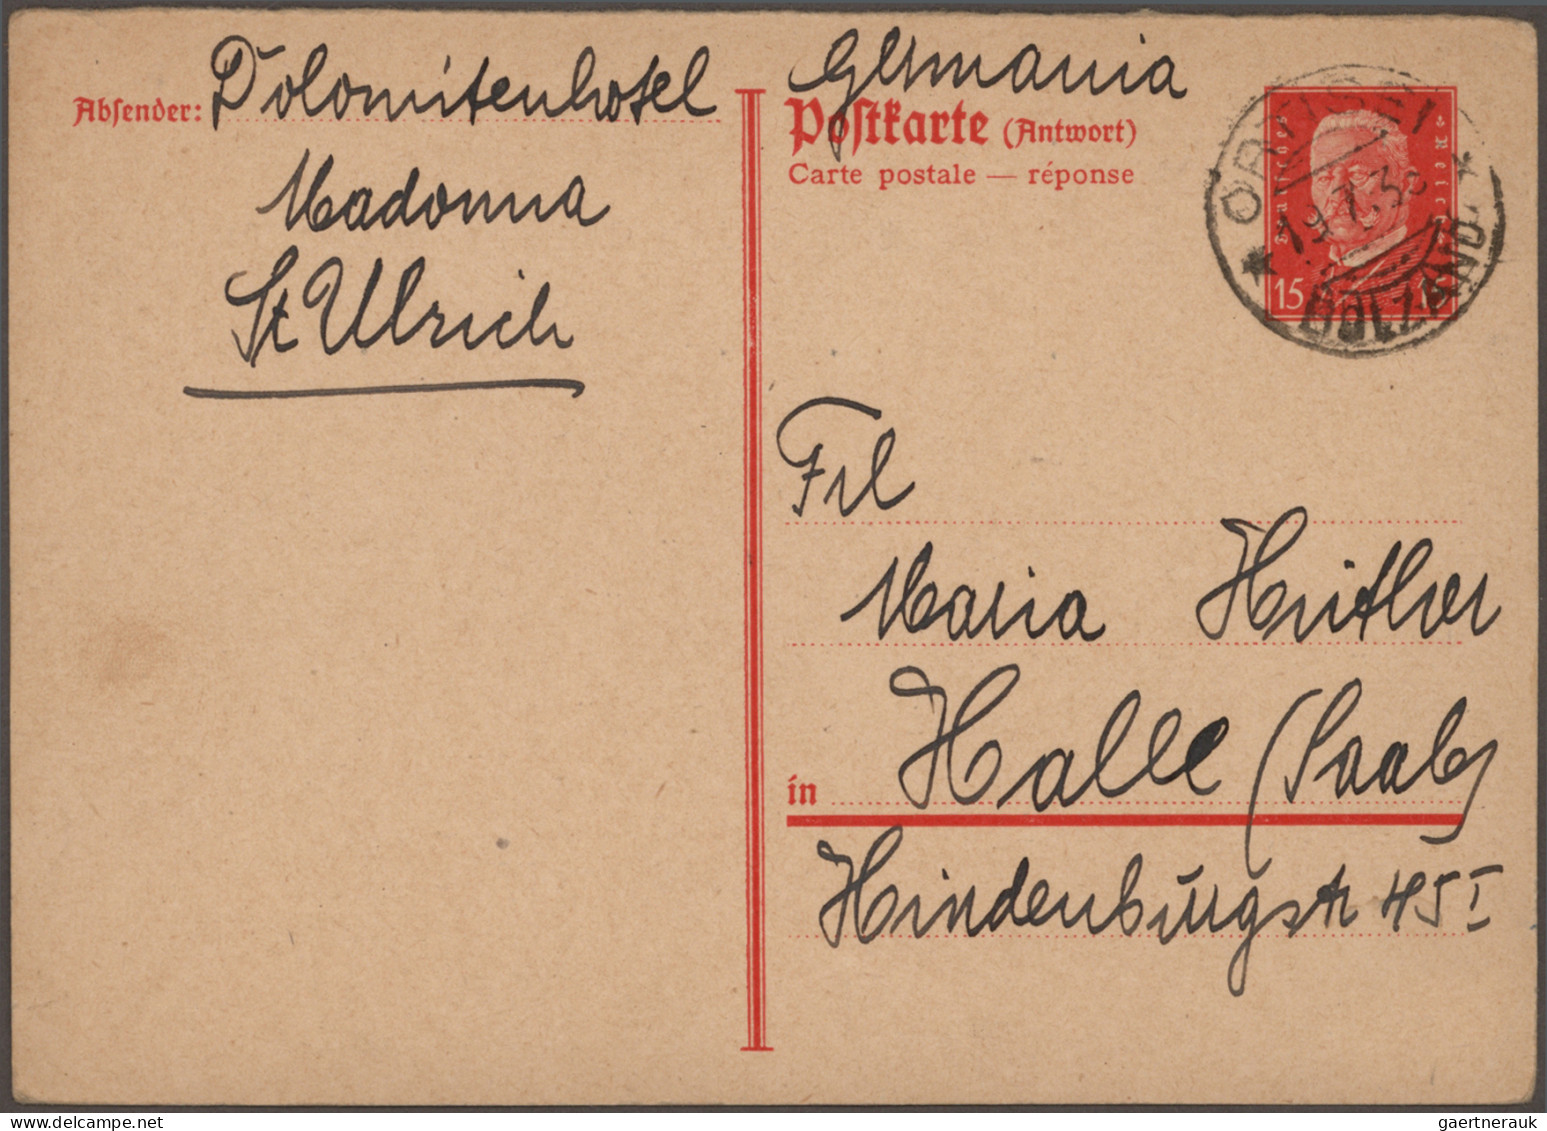 Absender: Dolomitenhotel
Madonna
St Ulrich
Germania
Postkarte (Antwort)
Carte postale — réponse
ORTISEI
BOLZANO
Deutsches Reich
15 15
Frl
Maria
Halle (Saale)
in
Hindenburgstr 45 I
gaertnerauk @ delcampe.net